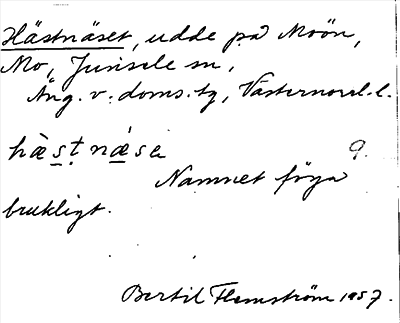 Hästnäset, udde på Moön,
Mo, Junsele sn,
Ång. v. doms. tg, Västernorrl. l.
hä̀s̠ṭnǽsa 9.
Namnet föga
brukligt.
Bertil Flemström 1957.